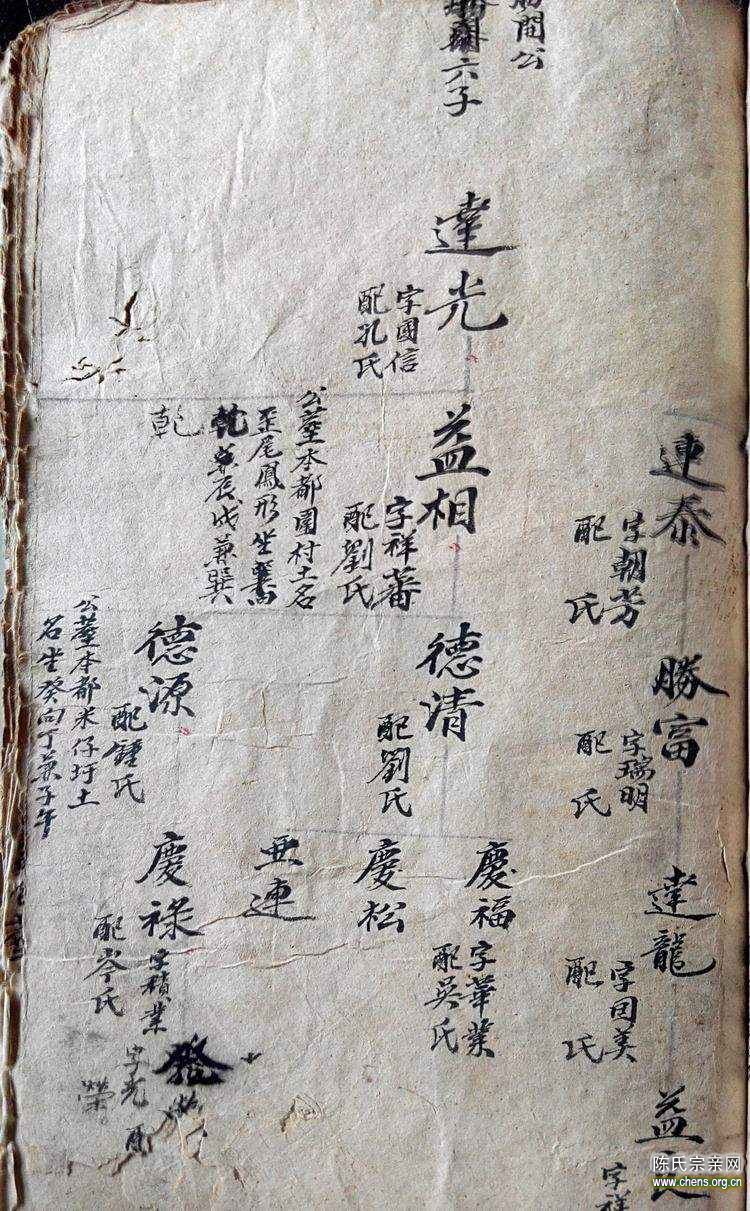 勝閏公
六子
連泰
字朝芳
配 氏
勝富
字瑞明
配 氏
達龍
字囯美
配 氏
益
字祥
達光
字國信
配孔氏
益相
字祥蕃
配劉氏
公葬本都圍村土名
歪尾鳳形坐
辰戌兼巽
乾
德清
配劉氏
德源
配鍾氏
公葬本都米仔圩土
名坐癸向丁兼子午
慶福
字華業
配吳氏
慶松
亜連
慶祿
字積業
配岑氏
發
字光
配
榮
陈氏宗亲网
www.chens.org.cn